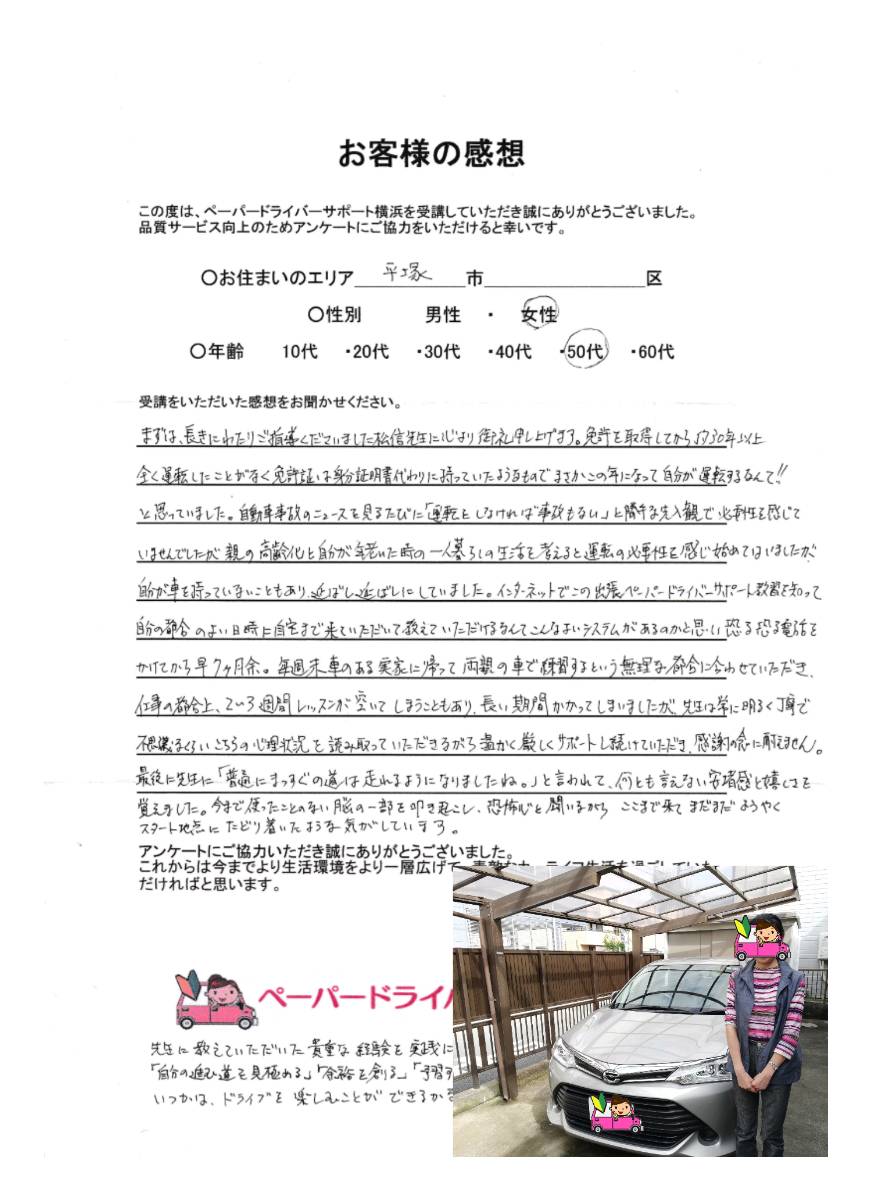 お客様の感想
この度は、ペーパードライバーサポート横浜を受講していただき誠にありがとうございました。
品質サービス向上のためアンケートにご協力をいただけると幸いです。
〇お住まいのエリア 平塚 市 区
〇性別 男性 ・ 女性
〇年齢 10代 ・20代 ・30代 ・40代 ・50代 ・60代
受講をいただいた感想をお聞かせください。
まずは、長きにわたりご指導くださいました松信先生に心より御礼申し上げます。免許を取得してから約30年以上
全く運転したことがなく免許証は身分証明書代わりに持っていたようなものでまさかこの年になって自分が運転するなんて!!
と思っていました。自動車事故のニュースを見るたびに「運転をしなければ事故もない」と勝手な先入観で必要性を感じて
いませんでしたが親の高齢化と自分が年老いた時の一人暮らしの生活を考えると運転の必要性を感じ始めてはいましたが
自分が車を持っていないこともあり、延ばし延ばしにしていました。インターネットでこの出張ペーパードライバーサポート教習を知って
自分の都合のよい日時に自宅まで来ていただいて教えていただけるなんてこんなよいシステムがあるのかと思い恐る恐る電話を
かけてから早7ヶ月余。毎週末車のある実家に帰って両親の車で練習するという無理な都合に合わせていただき、
仕事の都合上、2～3週間レッスンが空いてしまうこともあり、長い期間かかってしまいましたが、先生は常に明るく丁寧で
不思議なくらいこちらの心理状況を読み取っていただきながら温かく厳しくサポートし続けていただき、感謝の念に耐えません。
最後に先生に「普通にまっすぐの道は走れるようになりましたね。」と言われて、何とも言えない安堵感と嬉しさを
覚えました。今まで使ったことのない脳の一部を叩き起こし、恐怖心と闘いながら ここまで来て まだまだ ようやく
スタート地点に たどり着いたような気がしています。
アンケートにご協力いただき誠にありがとうございました。
これからは今までより生活環境をより一層広げて、素敵なカーライフ生活を過ごしていた
だければと思います。
ペーパードライバ
先生に教えていただいた貴重な経験を実践に
「自分の進む道を見極める」「余裕を創る」「予習す
いつかは、ドライブを楽しむことができるか